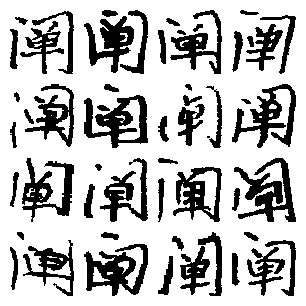 阐阐阐阐
阐阐阐阐
阐阐阐阐
阐阐阐阐